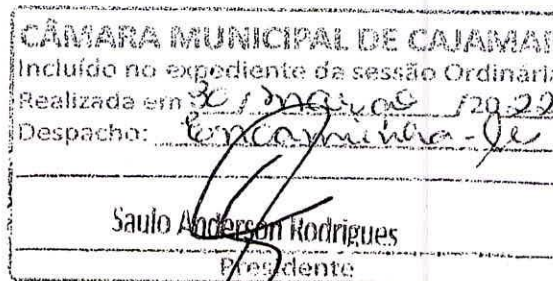 CÂMARA MUNICIPAL DE CAJAMAR
Incluído no expediente da sessão Ordinária
Realizada em 30 / março / 2022
Despacho: Encaminha-se
Saulo Anderson Rodrigues
Presidente